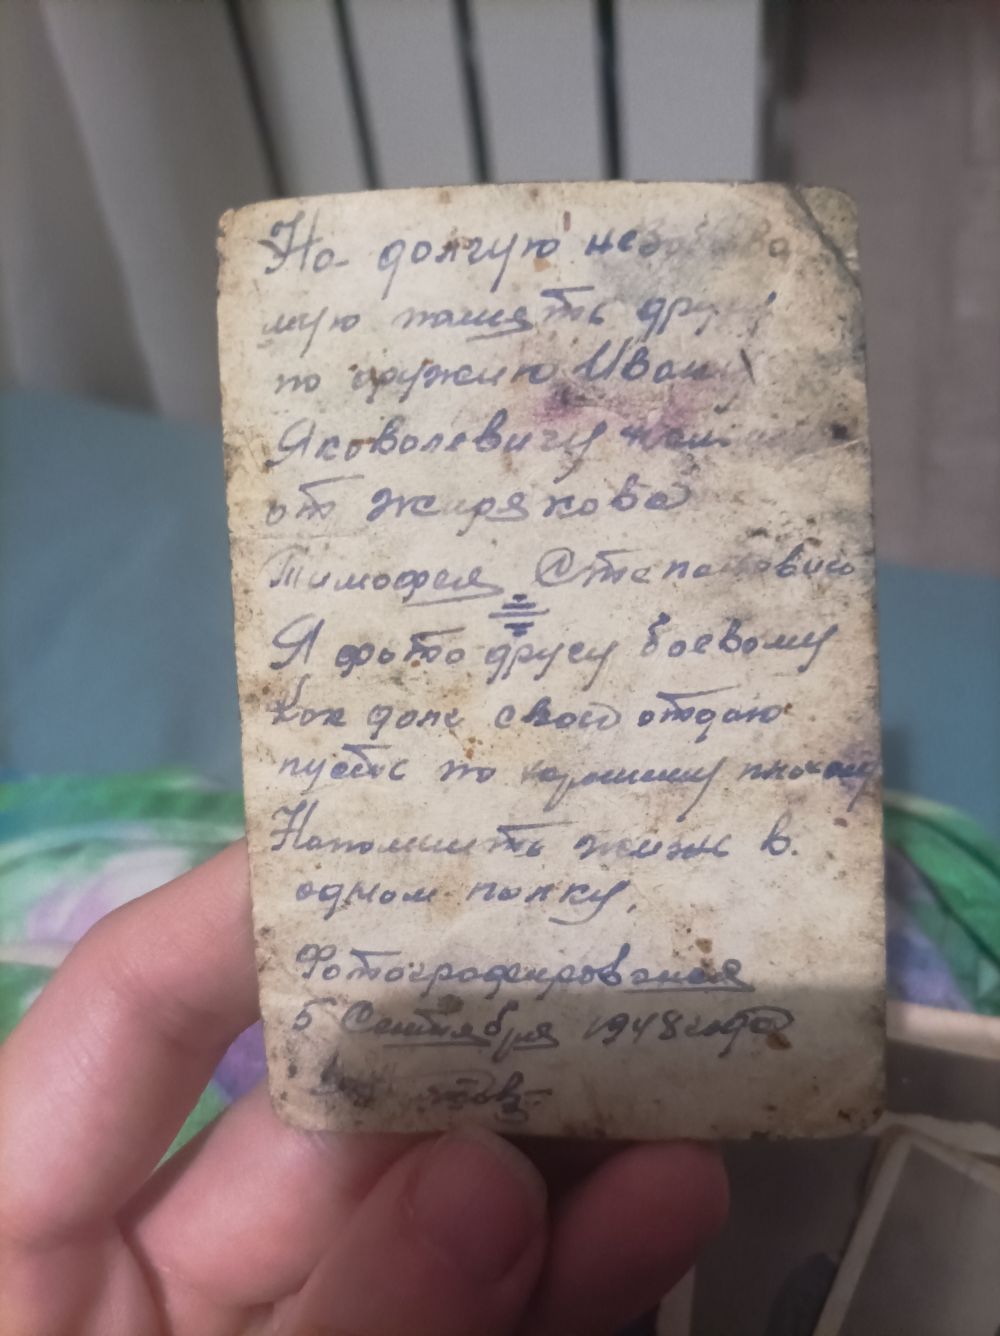 На долгую
мую память другу
по оружию Ивану
Яковолевичу
от Жирякова
Тимофея Степановича
Я фото другу боевому
Как долг свой отдаю
пусть по хорошему плохому
Напомнить жизнь в
одном полку,
Фотографирования
5 Сентября 1948 года